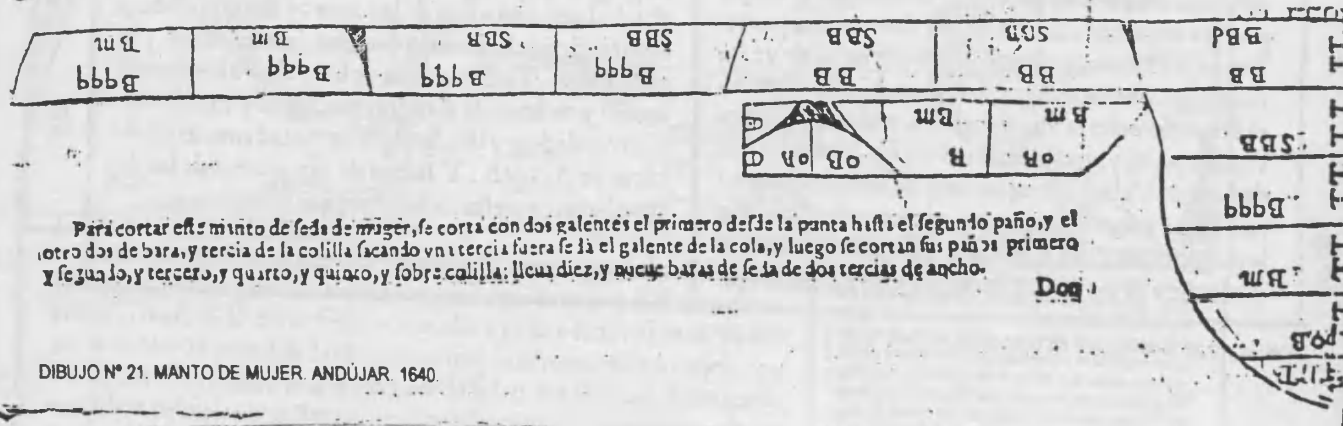 Bm Bm SBR SBB SBB BBd
Bqqq Bqqq Bqqq Bqqq BB BB BB
Bm Bm
SBB
Bqqq
Bm
Para cortar este manto de seda de muger, se corta con dos galentes el primero desde la punta hasta el segundo paño, y el
otro dos de bara, y tercia de la colilla sacando vna tercia fuera se dà el galente de la cola, y luego se cortan sus paños primero
y segundo, y tercero, y quarto, y quinto, y sobre colilla: lleua diez, y nueue baras de seda de dos tercias de ancho.
Dos
DIBUJO Nº 21. MANTO DE MUJER. ANDÚJAR. 1640.